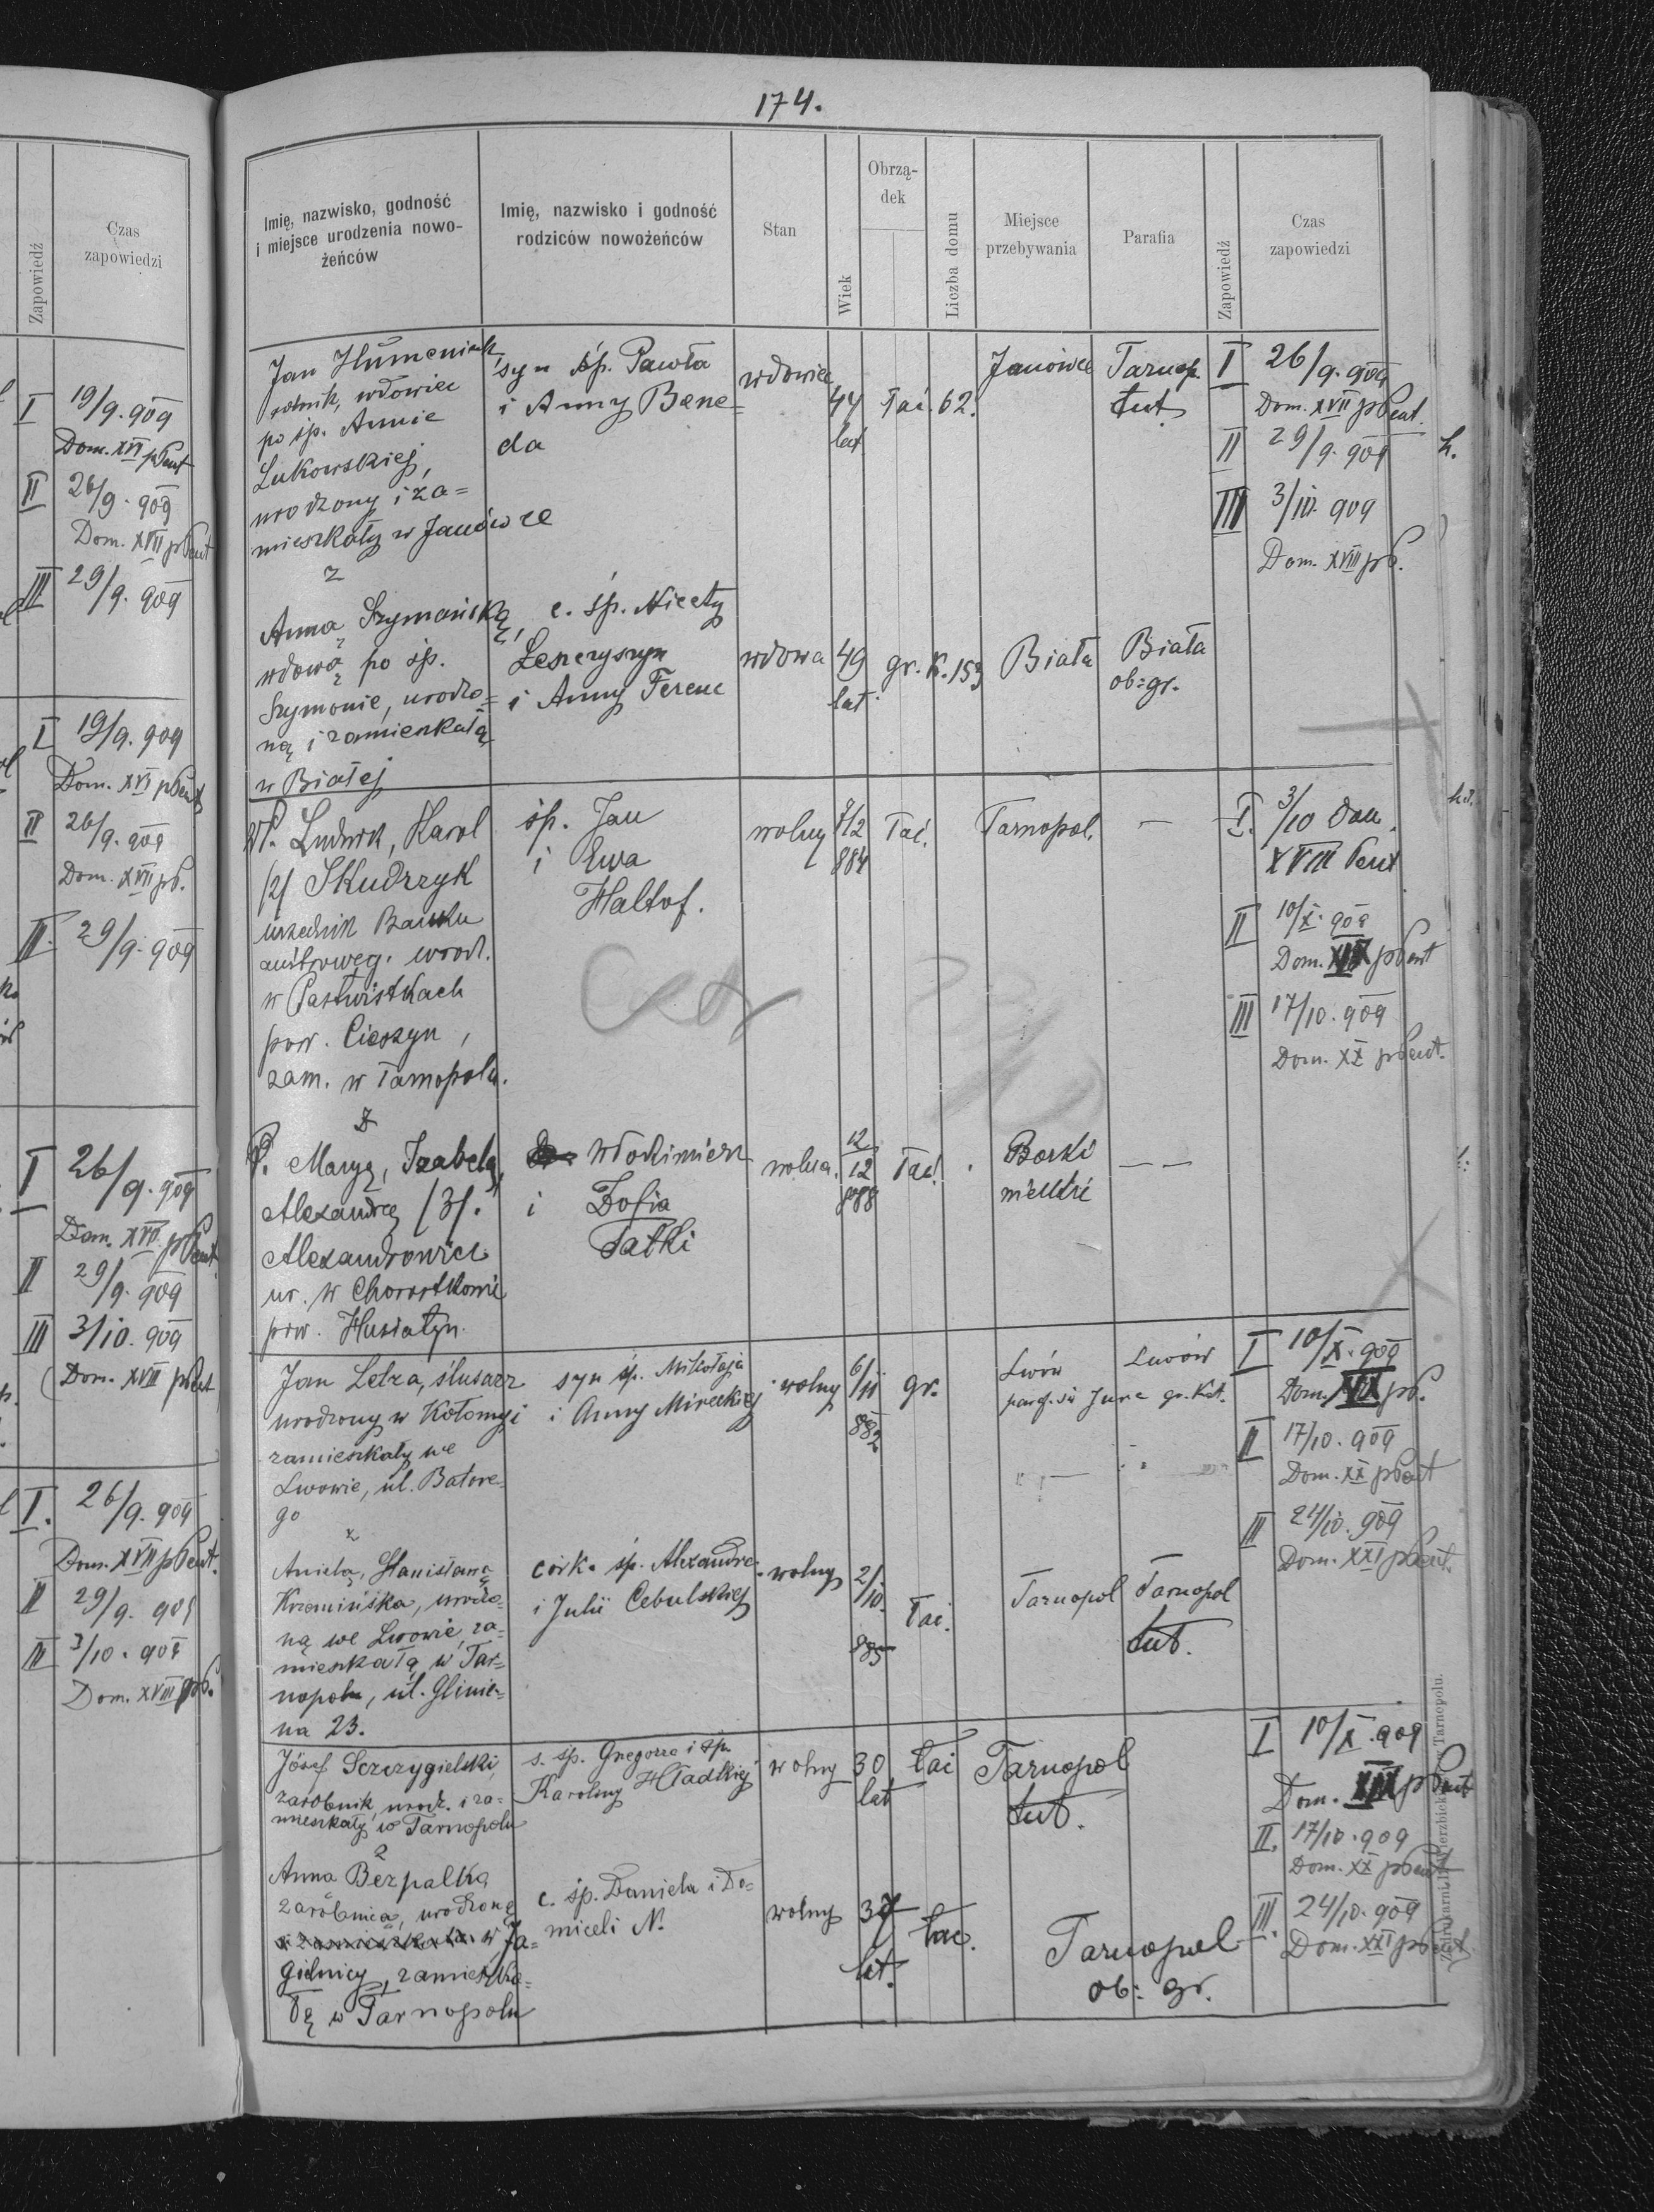 174.
Zapowiedź
Czas
zapowiedzi
I 19/9. 909
Dom. XVI pPent
II 26/9. 909
Dom. XVII pPent
III 29/9. 909
I 19/9. 909
Dom. XVI pPent
II 26/9. 909
Dom. XVII pP.
III 29/9. 909
I 26/9. 909
Dom. XVII pPent
II 29/9. 909
III 3/10. 909
Dom. XVIII pPent
I. 26/9. 909
Dom. XVII pPent.
II 29/9. 909
III 3/10. 909
Dom. XVIII pP.
Imię, nazwisko, godność
i miejsce urodzenia nowo-
żeńców
Imię, nazwisko i godność
rodziców nowożeńców
Stan
Wiek
Obrzą-
dek
Liczba domu
Miejsce
przebywania
Parafia
Zapowiedź
Czas
zapowiedzi
Jan Humeniuk
rolnik, wdowiec
po śp. Annie
Lukowskiej,
urodzony i za=
mieszkały w Janówce
syn śp. Pawła
i Anny Bene=
da
wdowiec
44
lat
łać. 62.
Janówce
Tarnop.
tut.
I 26/9. 909
Dom. XVII pPent.
II 29/9. 909
III 3/10. 909
Dom. XVIII pP.
z
Anną Szymańską,
wdową po śp.
Szymonie, urodzo=
ną i zamieszkałą
w Białej
c. śp. Nicety
Leszczyszyn
i Anny Ferenc
wdowa
49
lat.
gr. K. 153
Biała
Biała
ob: gr.
WP. Ludwik, Karol
(2) Skudrzyk
urzednik Banku
austrowęg. urodz.
w Pastwiskach
pow. Cieszyn,
zam. w Tarnopolu.
śp. Jan
i Ewa
Haltof.
wolny
7/2
884
łać.
Tarnopol.
I. 3/10 Dom.
XVIII Pent
II 10/X. 909
Dom. XIX pPent
III 17/10. 909
Dom. XX pPent.
z
P. Maryą, Izabelą,
Alexandrą (3).
Alexandrowicz
ur. w Chorostkowie
pow. Husiatyn.
Włodzimierz
i Zofia
Tatki
wolna.
12/12
888
łać.
Borki
wielkie
Jan Lelza, ślusarz
urodzony w Kołomyi
zamieszkały we
Lwowie, ul. Batore-
go
syn śp. Mikołaja
i Anny Mireckiej
wolny
6/11
882
gr.
Lwów
Lwów
paraf. św Jura gr. Kat.
I 10/X. 909
Dom. XIX pP.
II 17/10. 909
Dom. XX pPent
III 24/10. 909
Dom. XXI pPent.
z
Anielą, Stanisławą
Krzemińska, urodzo=
ną we Lwowie, za=
mieszkałą w Tar=
nopolu, ul. Glinia=
na 23.
córka śp. Alexandra
i Julii Cebulskiej
wolny
2/10.
885
łać.
Tarnopol
Tarnopol
tut.
Józef Szczygielski,
zarobnik, urodz. i za=
mieszkały w Tarnopolu
s. śp. Gregorza i śp.
Karoliny Hładkiej
wolny
30
lat
łać
Tarnopol
tut.
I 10/X. 909
Dom. XIX pPent
II. 17/10. 909
Dom. XX pPent
III. 24/10. 909
Dom. XXI pPent
z
Anna Bezpalką
zarobnica, urodzoną
w Ja=
gielnicy, zamieszka=
łą w Tarnopolu
c. śp. Daniela i Do=
miceli N.
wolny
37
lat.
łać.
Tarnopol
ob: gr.